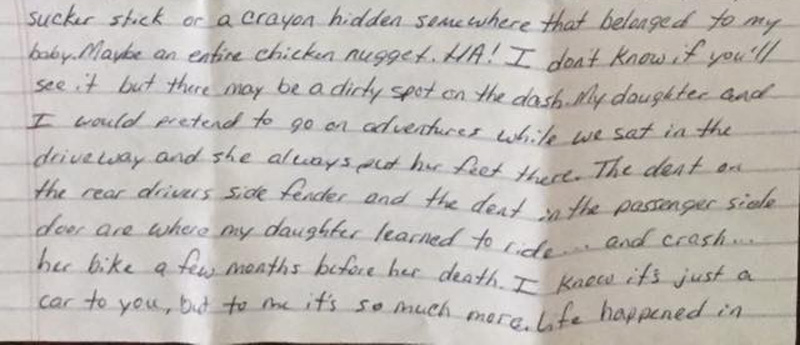 sucker stick or a crayon hidden somewhere that belonged to my
baby. Maybe an entire chicken nugget. HA! I don't know if you'll
see it but there may be a dirty spot on the dash. My daughter and
I would pretend to go on adventures while we sat in the
driveway and she always put her feet there. The dent on
the rear drivers side fender and the dent in the passenger side
door are where my daughter learned to ride... and crash...
her bike a few months before her death. I know it's just a
car to you, but to me it's so much more. Life happened in